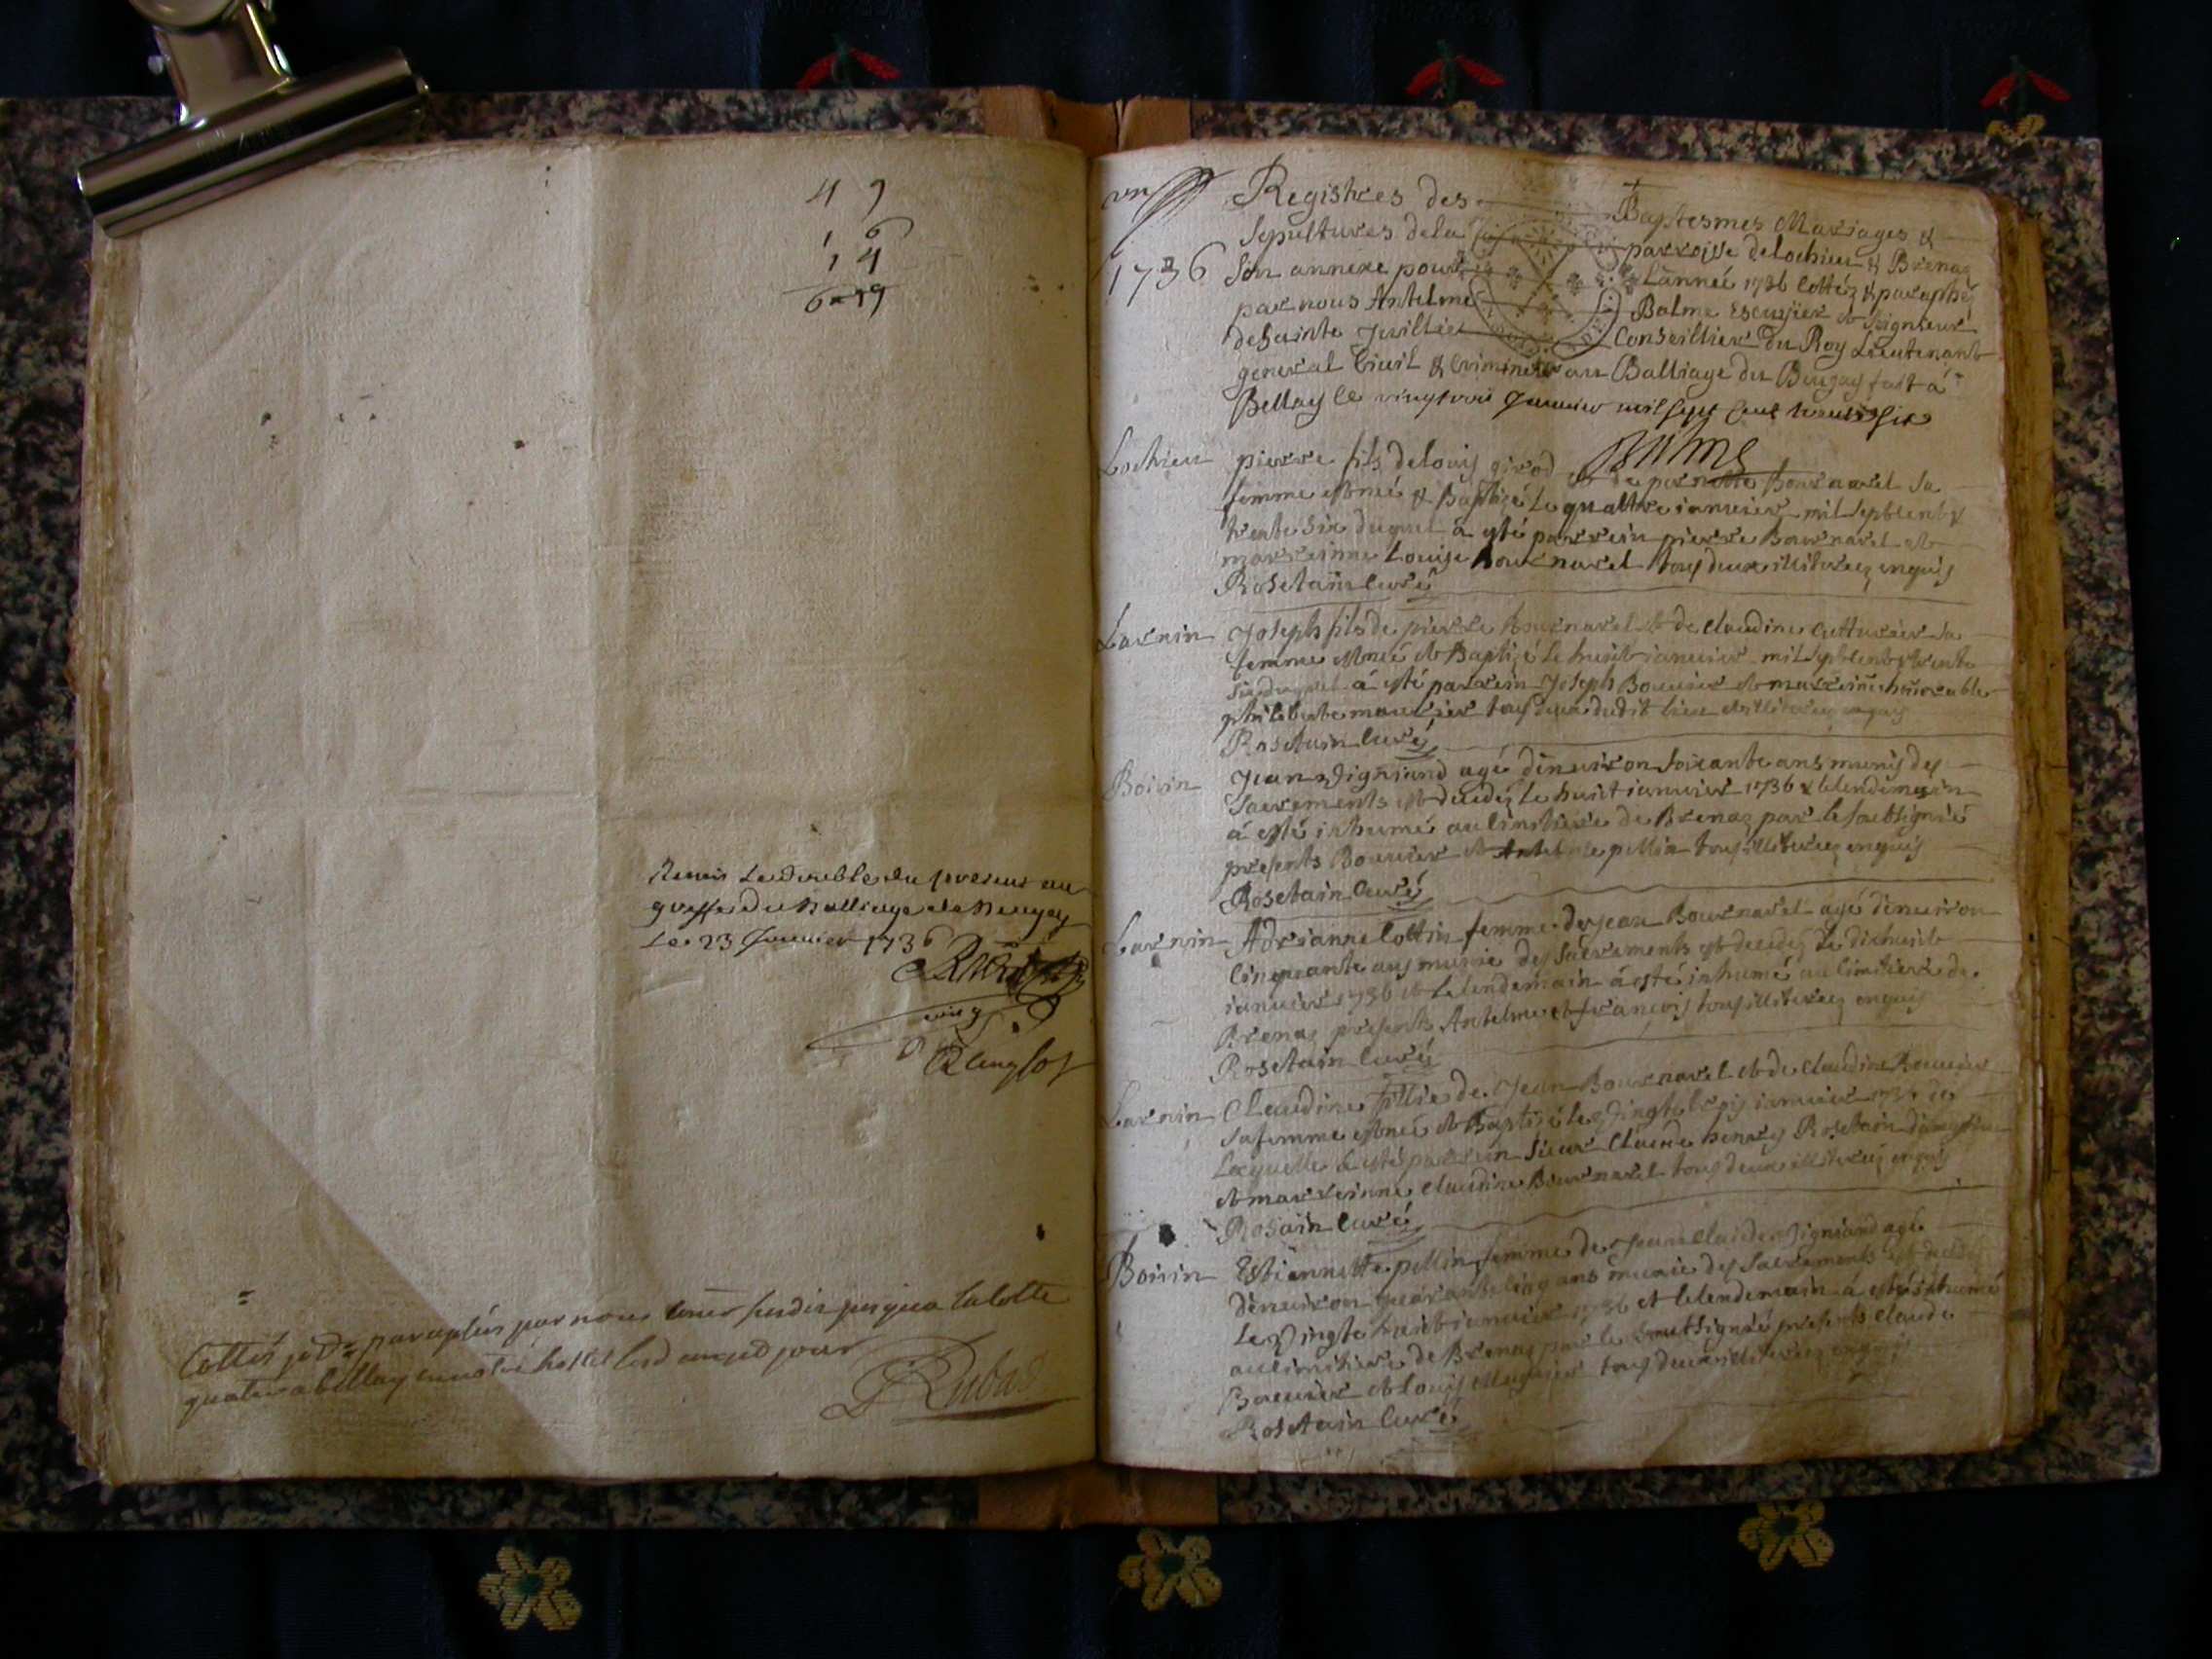 4 9
1 6
1 4
6 - 19
Remis Le double du present au
greffe du Balliage de Beugey
Le 23 Janvier 1736
Cottés et paraphés par nous
quatre a bellay en notre hostel led jour
Registres des Baptesmes Mariages &
Sepultures dela parroisse de Lochieu & Brenaz
1736 Son annexe pour Lanneé 1736 Cottéz & paraphéz
par nous Antelme Balme Escuyier et Seigneur
de Sainte Juillie Conseillier du Roy Lieutenant
general Civil & Criminel au Balliage du Beugey fait á
Bellay le vingt trois Janvier mil sept cent trente six
Balme
Lochieu pierre fils de Louis girod et de pernette Bournarel sa
femme est né & Baptizé Le quattre ianvier mil septcent &
trente Six duquel a esté parrein pierre Bournarel et
marreinne Louise Bournarel tous deux illiterez enquis
Rosetain Curé
Larnin Joseph fils de pierre Bournarel et de Claudine Cutturier sa
femme est né et Baptizé Le huict ianvier mil septcent & trente
Six duquel á esté parrein Joseph Bouvier et marreine honorable
philiberte tous deux dudit lieu et illiterez enquis
Rosetain Curé
Boisin Jean agé denuiron Soixante ans munis des
Sacrements est decedez Le huict ianvier 1736 & lelendemain
á esté inhumé au Cimitiere de Brenaz par le Soubsigné
presents Bouvier et Antelme pellin tous illiterez enquis
Rosetain Curé
Larnin Adrianne Cottin femme de Jean Bournarel agé denuiron
Cinquante ans munie des Sacrements est decedez Le dixhuict
ianvier 1736 et Lelendemain á esté inhumé au Cimitiere de
Brenaz presents Antelme et françois tous illiterez enquis
Rosetain Curé
Larnin Claudine fillie de Jean Bournarel et de Claudine Bouvier
Sa femme est née et Baptizé le vingt trois ianvier 1736 de
Laquelle á esté parrein Sieur Claude henry Rosetain
et marreinne Claudine Bournarel tous deux illiterez enquis
Rosain Curé
Boisin Estiennette pellin femme de Jean Claude agé
denuiron quarante Cinq ans munie des Sacrements est decedé
Le vingt huict ianvier 1736 et lelendemain á esté inhumé
au Cimitiere de Brenaz par le Soubsigné presents Claude
Bouvier et Louis tous deux illiterez enquis
Rosetain Curé